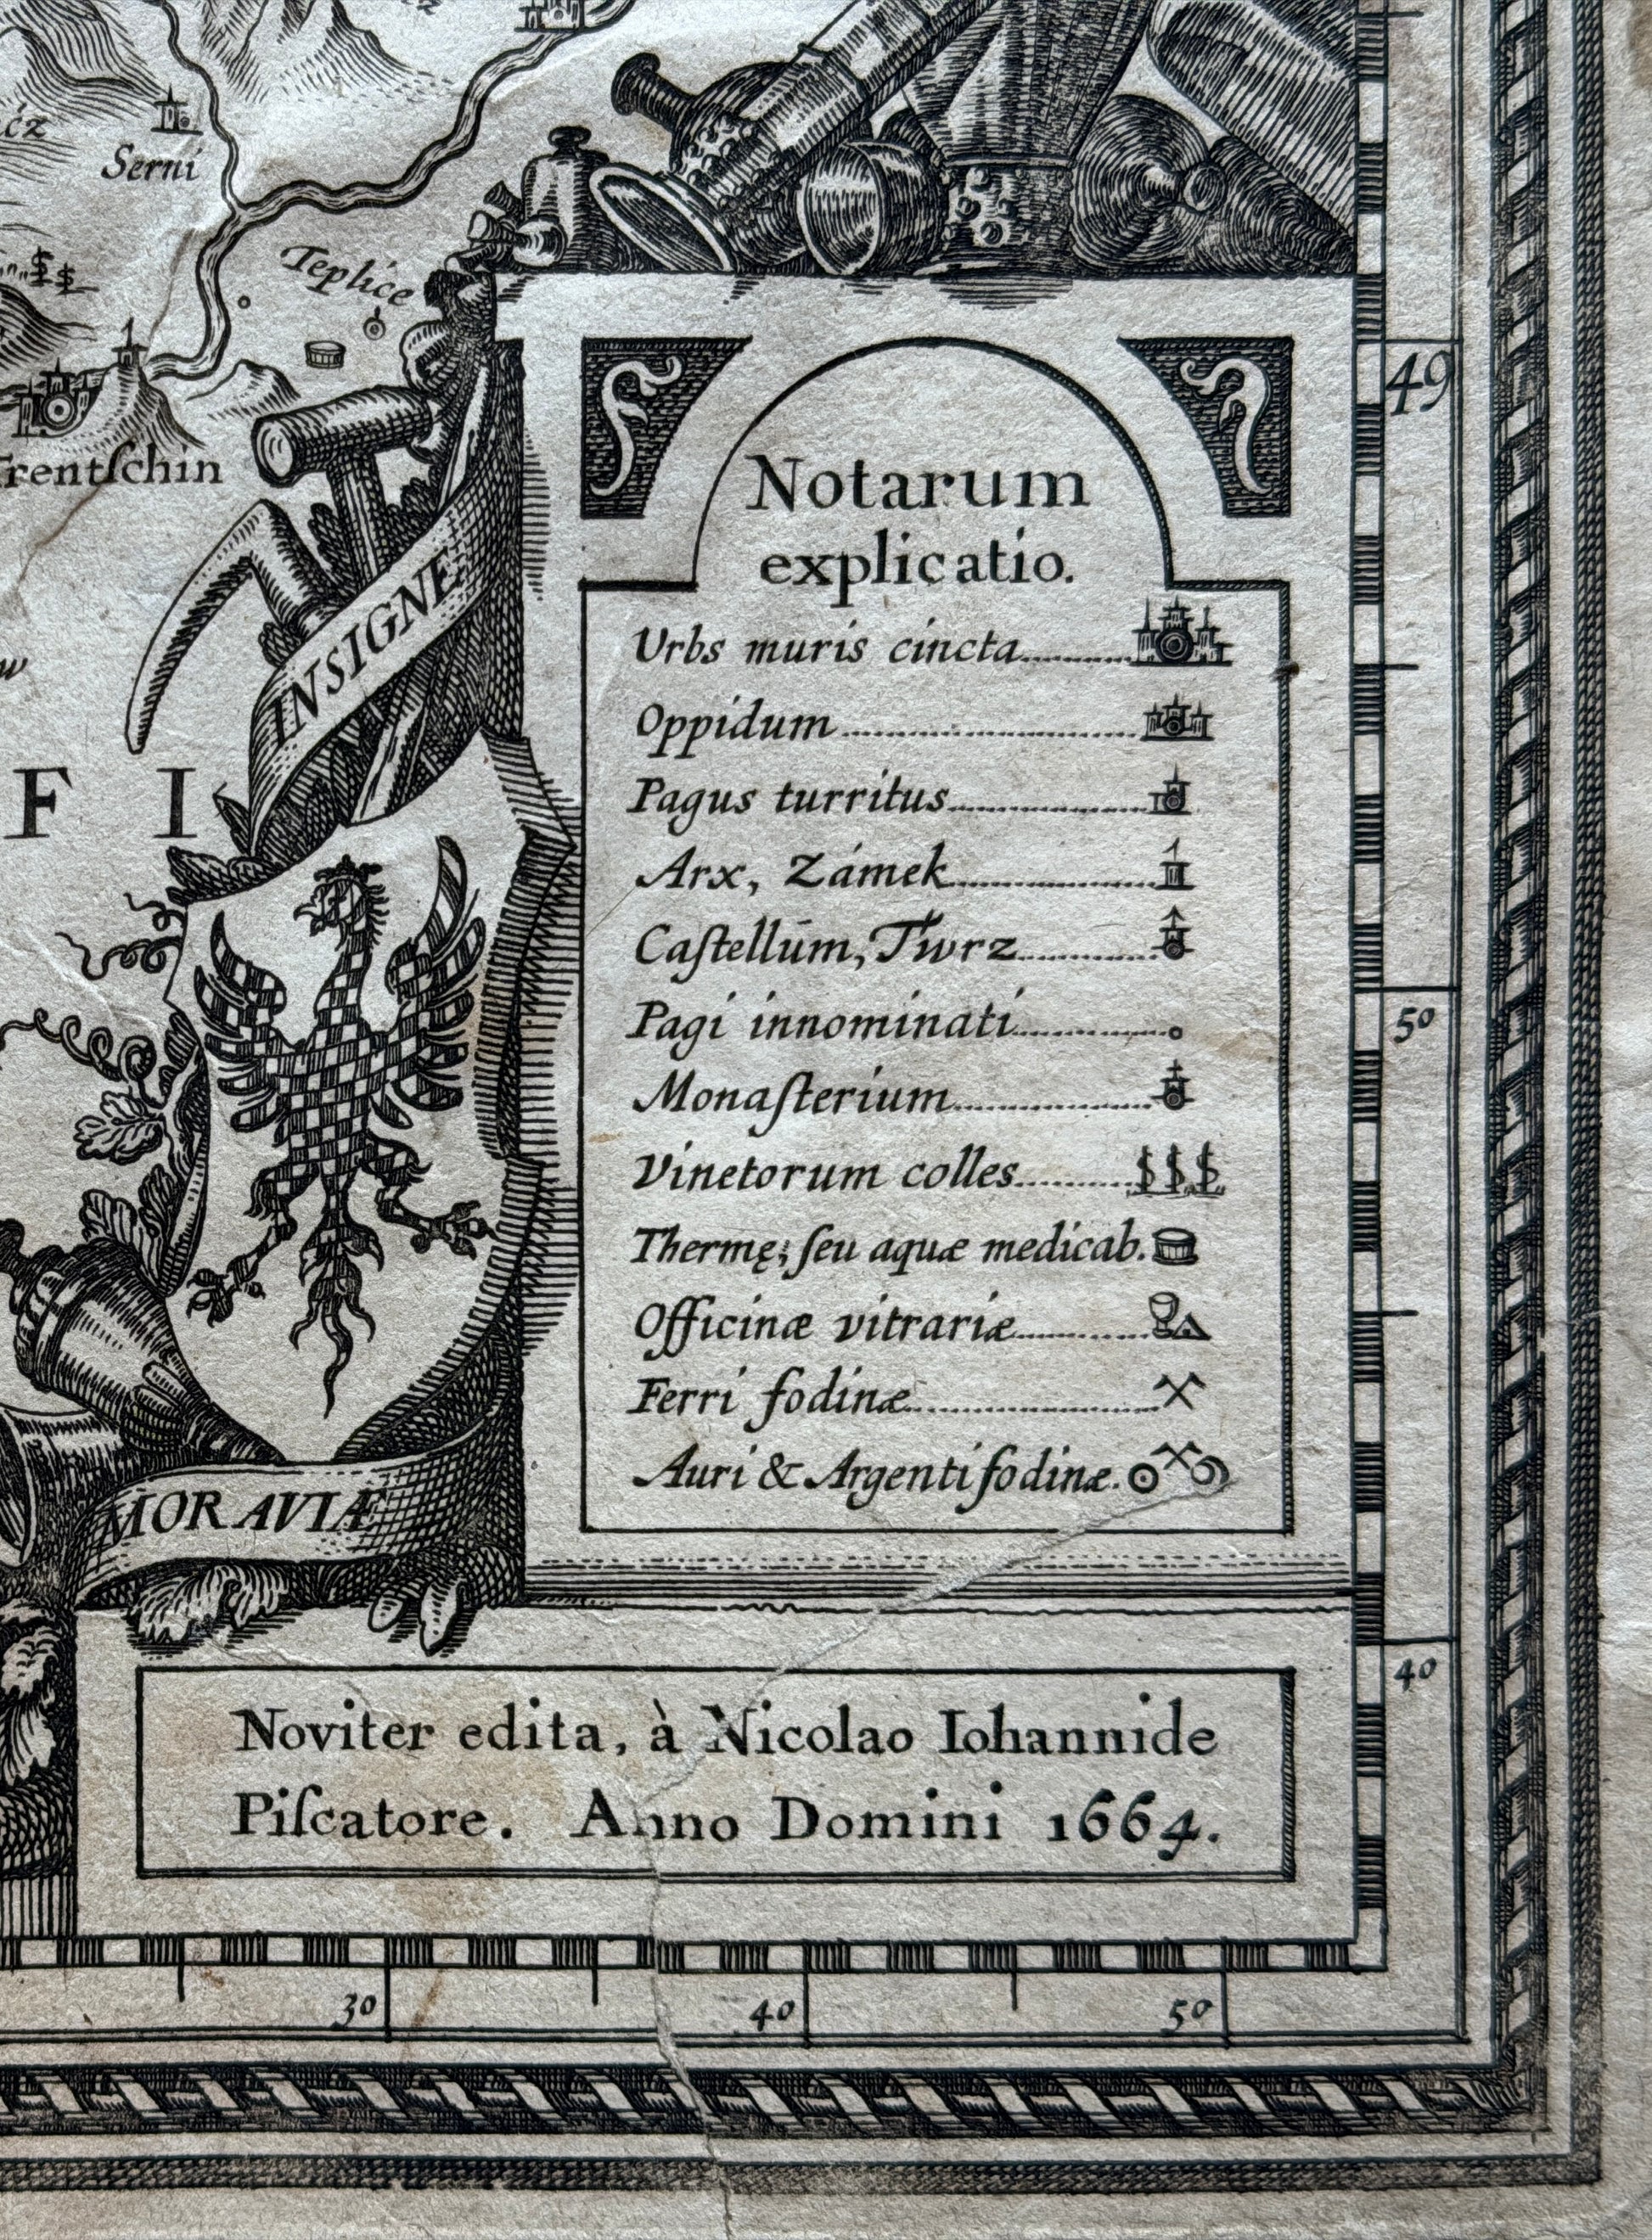 Serni
Teplice
Trentſchin
49
INSIGNE
F I
Notarum
explicatio.
Urbs muris cincta
Oppidum
Pagus turritus
Arx, Zámek
Caſtellūm, Twrz
Pagi innominati
Monaſterium
Vinetorum colles
Thermę; ſeu aquæ medicab.
Officinæ vitrariæ
Ferri fodinæ
Auri & Argenti fodinæ.
50
MORAVIÆ
40
Noviter edita, à Nicolao Iohannide
Piſcatore. Anno Domini 1664.
30 40 50